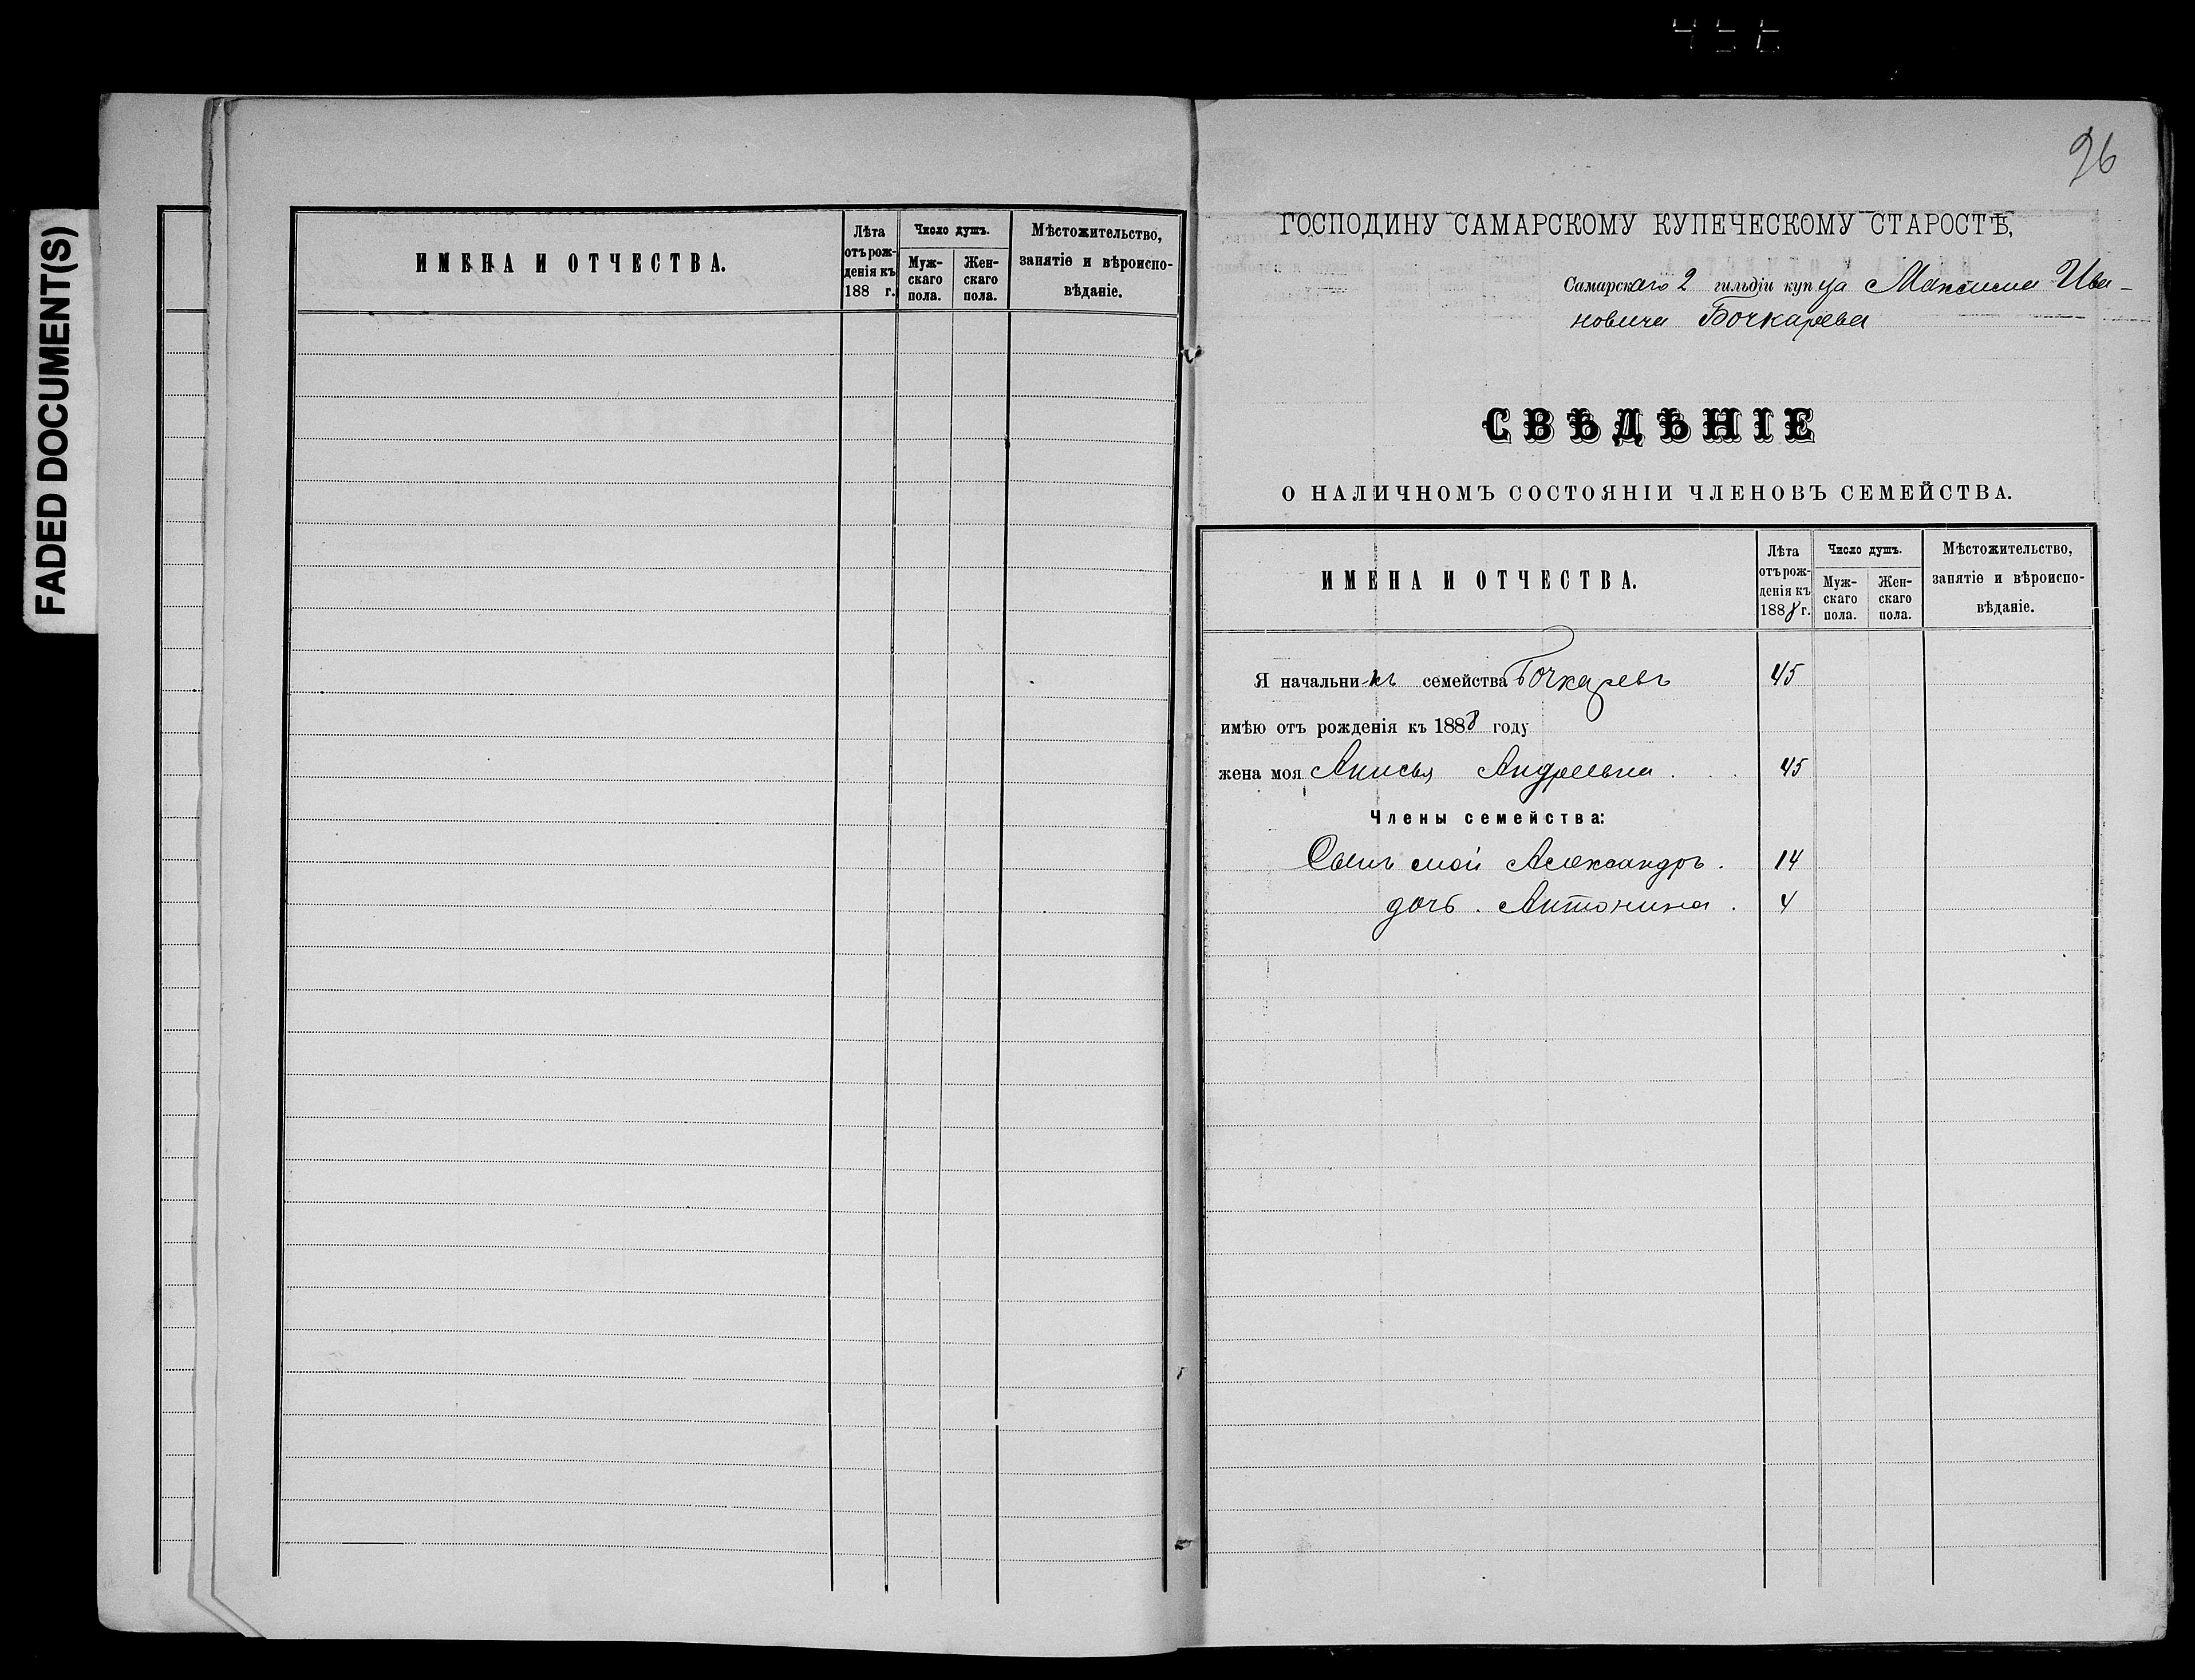 FADED DOCUMENT(S)
ИМЕНА И ОТЧЕСТВА.
Лѣта
отъ рож-
денія къ
188 г.
Число душъ.
Муж-
скаго
пола.
Жен-
скаго
пола.
Мѣстожительство,
занятіе и вѣроиспо-
вѣданіе.
96
ГОСПОДИНУ САМАРСКОМУ КУПЕЧЕСКОМУ СТАРОСТѢ,
Самарскаго 2 гильдіи купца Максима Ива-
новича Бочкарева
СВѢДѢНІЕ
О НАЛИЧНОМЪ СОСТОЯНІИ ЧЛЕНОВЪ СЕМЕЙСТВА.
ИМЕНА И ОТЧЕСТВА.
Лѣта
отъ рож-
денія къ
1888 г.
Число душъ.
Муж-
скаго
пола.
Жен-
скаго
пола.
Мѣстожительство,
занятіе и вѣроиспо-
вѣданіе.
Я начальникъ семейства Бочкаревъ 45
имѣю отъ рожденія къ 1888 году
жена моя Анисья Андреевна . . . 45
Члены семейства:
Сынъ мой Александръ . 14
дочь . Антонина . 4